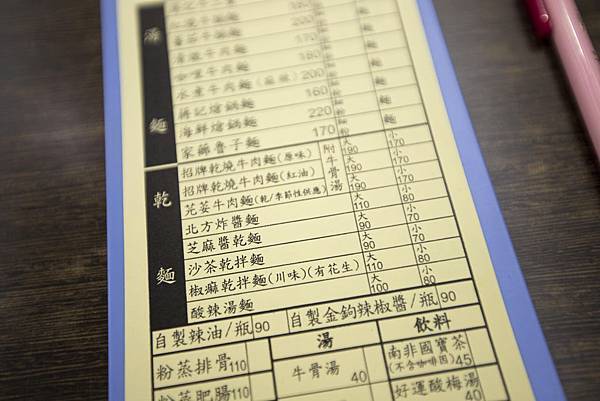 湯麵
番茄牛肉麵 180
清燉牛肉麵 180
咖哩牛肉麵 180
水煮牛肉麵(麻辣) 200
蔣記熗鍋麵 160
海鮮熗鍋麵 220
家鄉魯子麵 170
乾麵
附牛骨湯
招牌乾燒牛肉麵(原味) 大190 小170
招牌乾燒牛肉麵(紅油) 大190 小170
芫荽牛肉麵(乾/季節性供應) 大190 小170
北方炸醬麵 大110 小80
芝麻醬乾麵 大90 小70
沙茶乾拌麵 大90 小70
椒麻乾拌麵(川味)(有花生) 大110 小80
酸辣湯麵 大100 小80
自製辣油/瓶90 自製金鉤辣椒醬/瓶90
湯 飲料
粉蒸排骨110 牛骨湯 40 南非國寶茶(不含咖啡因)45
粉蒸肥腸110 好運酸梅湯 40